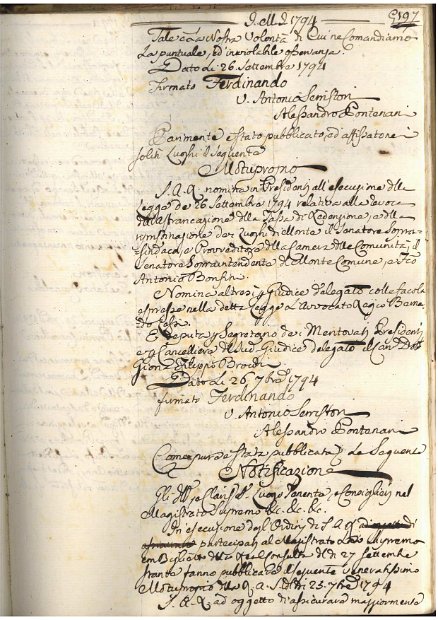 1794 197
Tale è La Nostra Volontà di Cui ne Comandiamo
La puntuale, ed inviolabile osservanza
Dato Li 26. Settembre 1794
Firmato Ferdinando
V. Antonio Seristori
Alessandro Pontenari
Parimente è stato pubblicato, ed affisso per i
soliti Luoghi il seguente
Motuproprio
S. A. R. nomina in Presidenti all'esecuzione della
Legge de 26 Settembre 1794 relativa alla
affrancazione delle Tasse di Redenzione, e alla
dei Luoghi di Monte il Senatore
sindaco, e Provveditore della Camera delle Comunità, il
Senatore Soprintendente del Monte Comune
Antonio
Nomina altresì in Giudice delegato colle facoltà
espresse nella detta Legge L'Avvocato Regio
E deputa in Segretario dei Mentovati Presidenti
e Cancelliere del Giudice delegato il
Filippo
Dato Li 26. 7bre 1794
firmato Ferdinando
V. Antonio Seristori
Alessandro Pontenari
Come pure è stata pubblicata La Seguente
Notificazione
Gli Luogo Tenente, e Consiglieri nel
Magistrato Supremo &c. &c. &c.
In esecuzione degli Ordini di S. A. R.
partecipati al Magistrato Loro Supremo
con Biglietto della del dì 27 Settembre
stante fanno pubblicare il seguente Veneratissimo
Motuproprio della R. A. S. del dì 23. 7bre 1794
S. A. R. ad oggetto di assicurare maggiormente